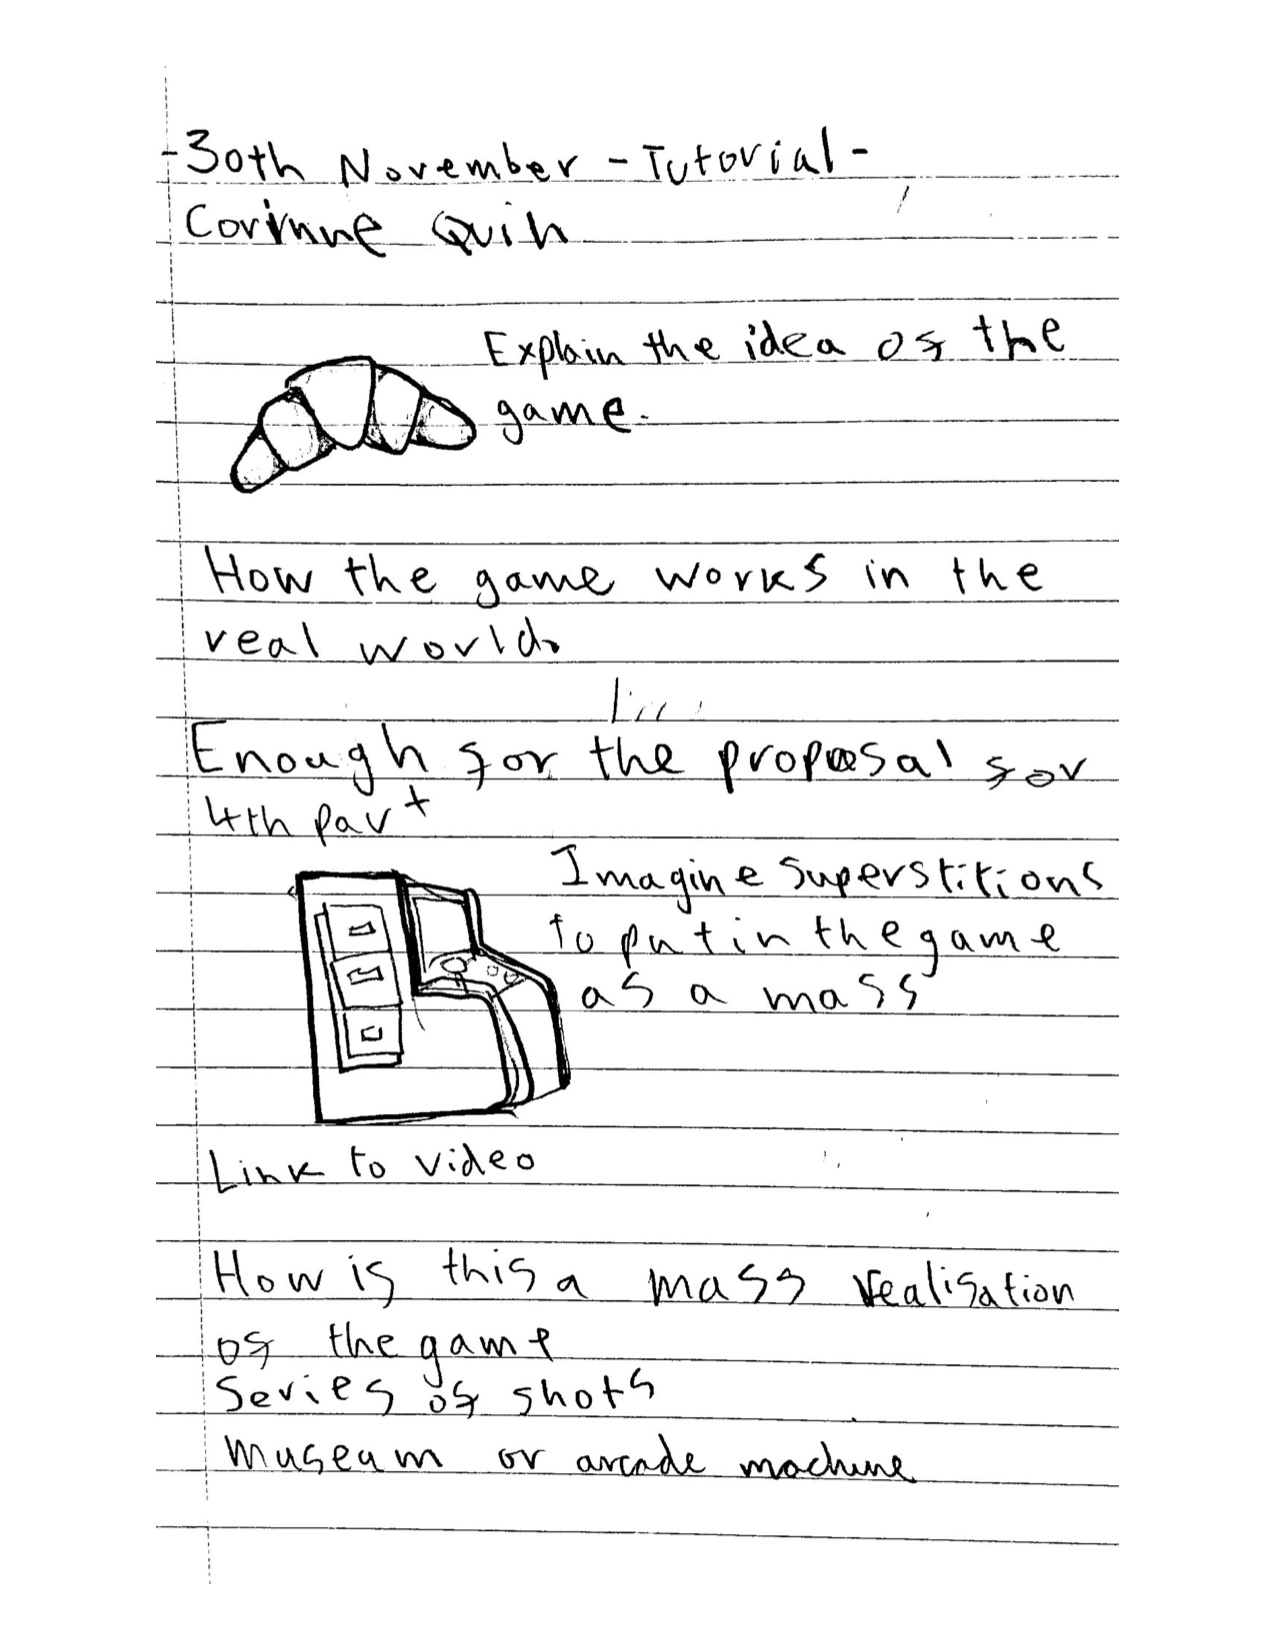 -30th November - Tutorial -
Corinne Quin
Explain the idea of the
game.
How the game works in the
real world.
Enough for the proposal for
4th part
Imagine superstitions
to put in the game
as a mass
Link to video
How is this a mass realisation
of the game
Series of shots
museam or arcade machine